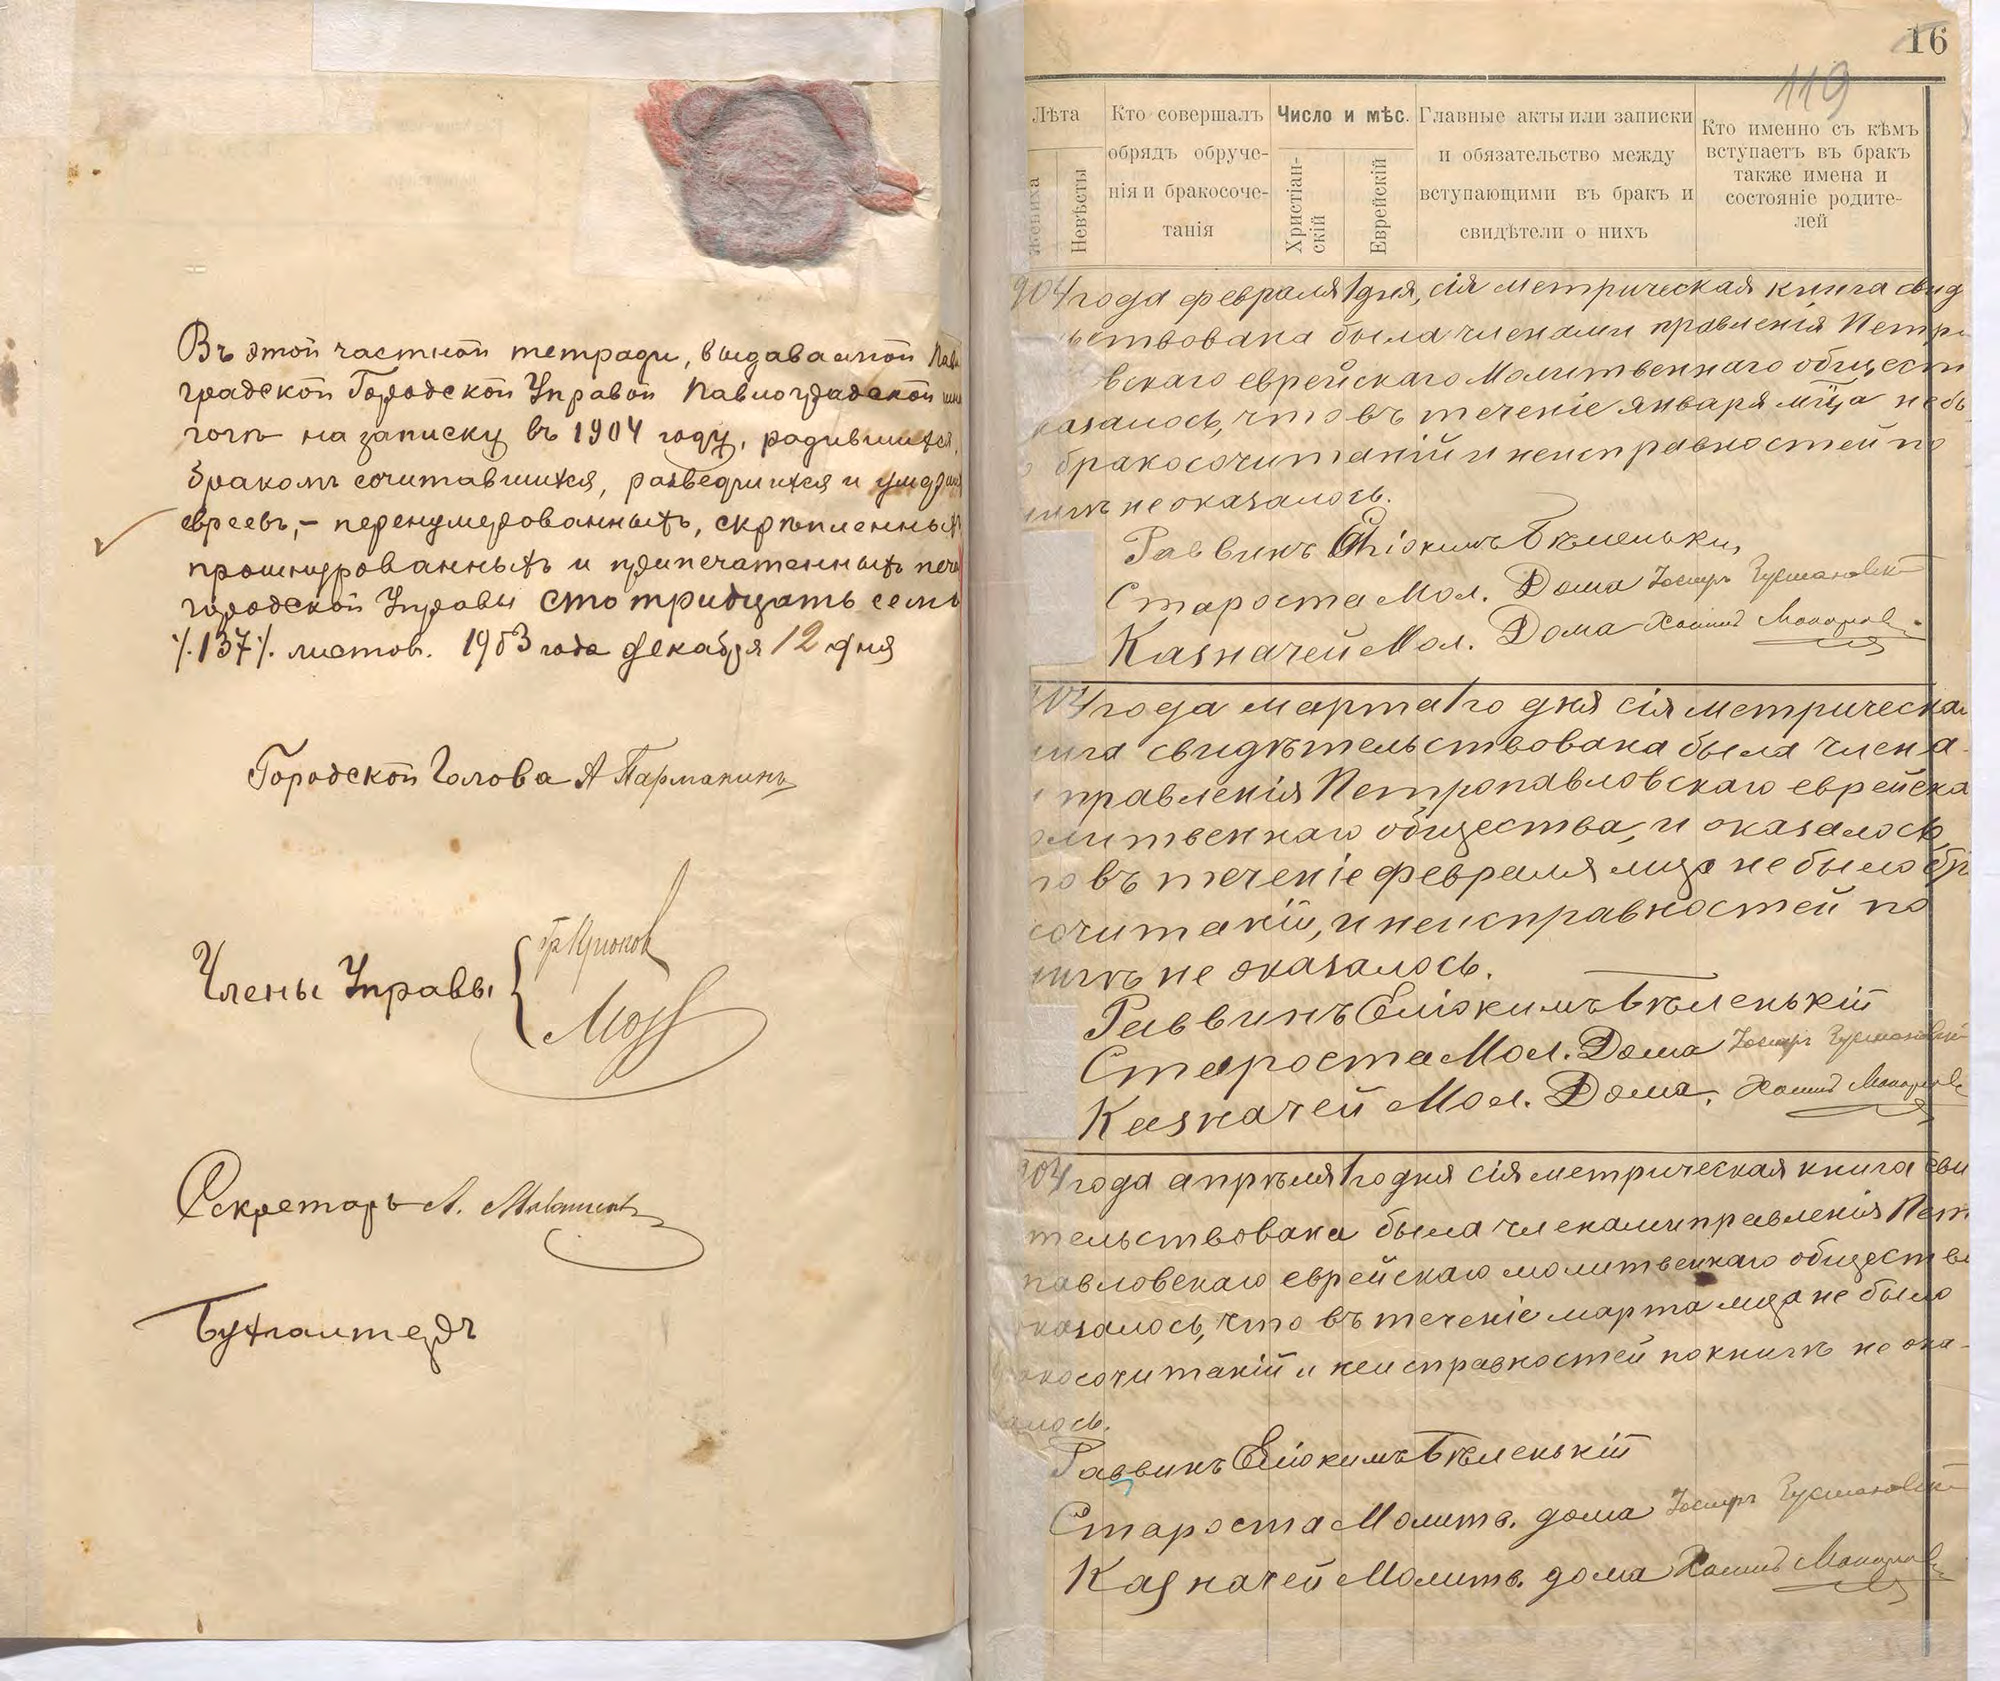 Въ этой частной тетради, выдаваемой Пав
градской Городской Управой Павлоградской
на записку въ 1904 году, родившихся,
бракомъ сочитавшихся, разведшихся и умерш
евреевъ, – перенумерованныхъ, скрѣпленныхъ
прошнурованныхъ и припечатанныхъ печа
городской Управы сто тридцать семь
٪137٪ листов. 1903 года Декабря 12 дня
Городской Голова А Парманинъ
Члены Управы
Секретарь А.
Бухгалтеръ
16
119
Лѣта
Жениха
Невѣсты
Кто совершалъ
обрядъ обруче-
нія и бракосоче-
танія
Число и мѣс.
Христіан-
скій
Еврейскій
Главные акты или записки
и обязательство между
вступающими въ бракъ и
свидѣтели о нихъ
Кто именно съ кѣмъ
вступаетъ въ бракъ
также имена и
состояніе родите-
лей
904 года февраля 1 дня, сія метрическая книга свид
ьствована была членами правленія Петро
вскаго еврейскаго Молитвеннаго общест
казалось, что въ теченіе января мѣца не бы
бракосочитаній и неисправностей по
нигѣ не оказалось.
Раввинъ Еліокимъ Бѣленькій
Староста Мол. Дома
Казначей Мол. Дома
904 года марта 1го дня сія метрическая
нига свидѣтельствована была члена-
и правленія Петропавловскаго еврейска
олитвеннаго общества, и оказалось,
то въ теченіе февраля мца не было бр
сочитаній, и неисправностей по
нигѣ не оказалось.
Раввинъ Еліокимъ Бѣленькій
Староста Мол. Дома
Казначей Мол. Дома.
904 года апрѣля 1го дня сія метрическая книга сви
тельствована была членами правленія Пет
павловскаго еврейскаго молитвеннаго обществ
казалось, что въ теченіе марта мца не было
акосочитаній и неисправностей по книгѣ не ока-
алось.
Раввинъ Еліокимъ Бѣленькій
Староста Молитв. дома
Казначей Молитв. дома